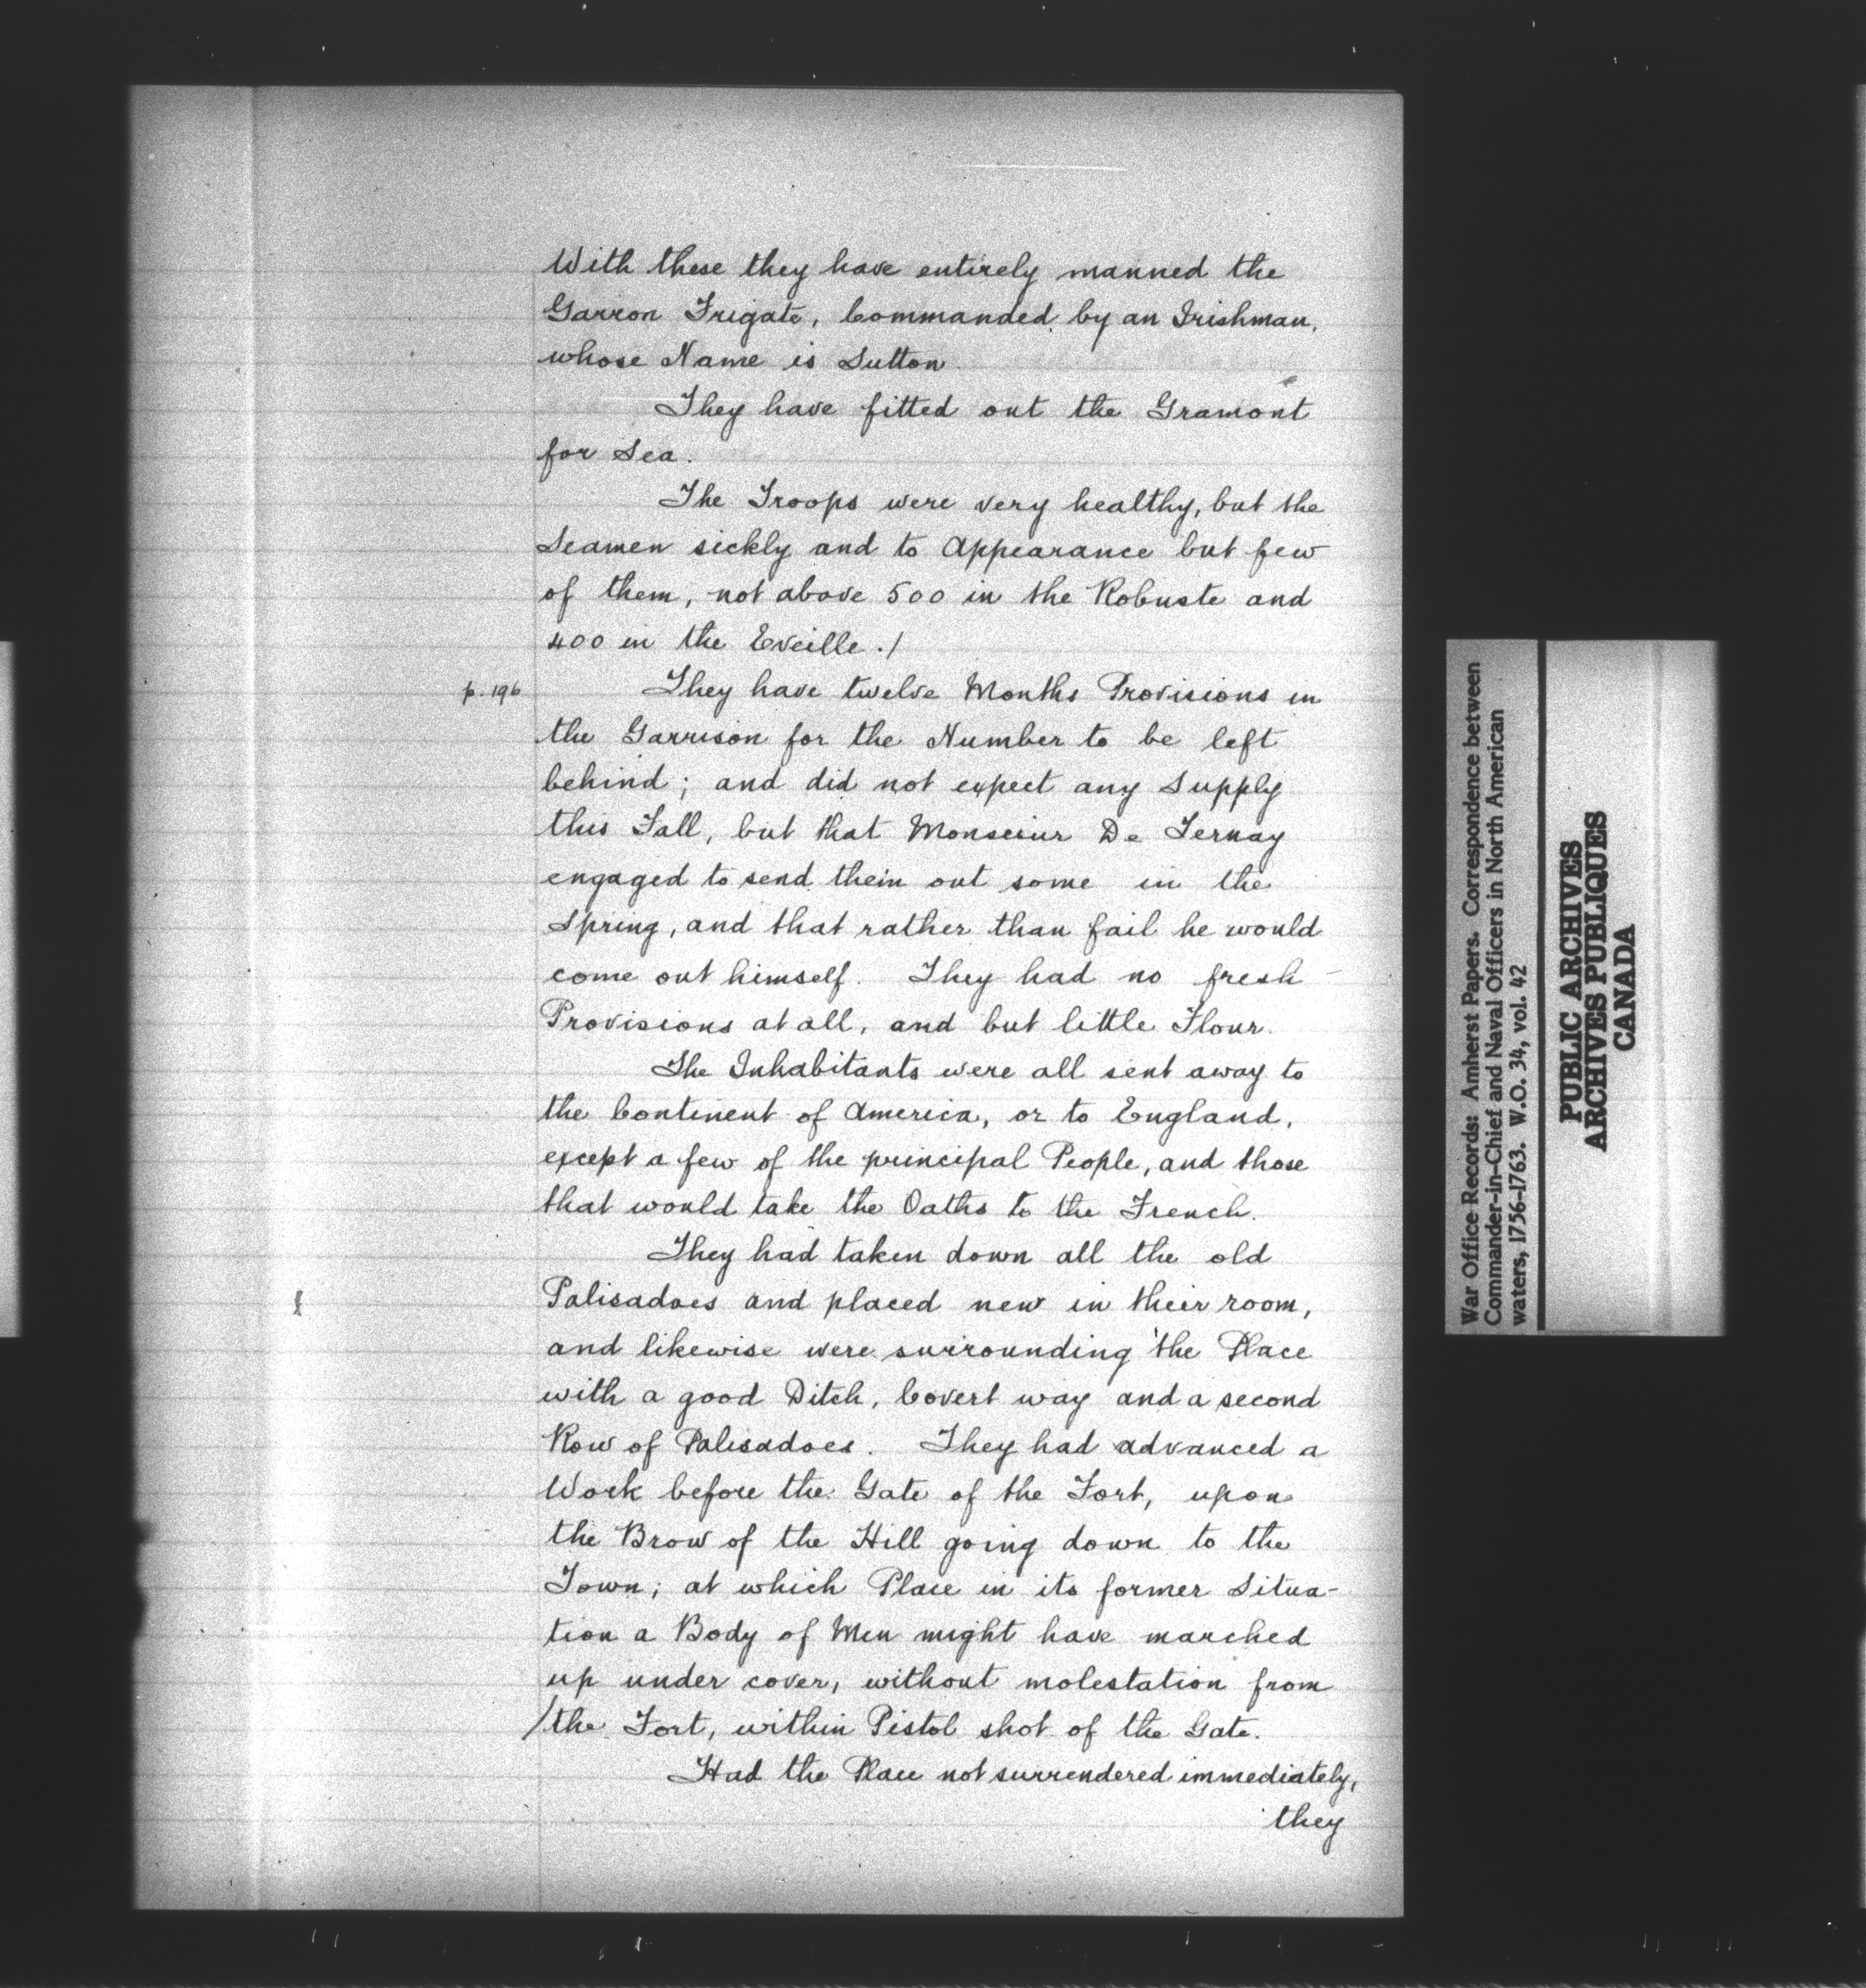 With these they have entirely manned the
Garron Frigate, Commanded by an Irishman,
whose Name is Sutton
They have fitted out the Gramont
for Sea.
The Troops were very healthy, but the
Seamen sickly and to Appearance but few
of them, not above 500 in the Robuste and
400 in the Eveille ./
p. 196
They have twelve Months Provisions in
the Garrison for the Number to be left
behind; and did not expect any Supply
this Fall, but that Monsieur De Ternay
engaged to send them out some in the
Spring, and that rather than fail he would
come out himself. They had no fresh
Provisions at all, and but little Flour.
The Inhabitants were all sent away to
the Continent of America, or to England,
except a few of the principal People, and those
that would take the Oaths to the French.
They had taken down all the old
Palisadoes and placed new in their room,
and likewise were surrounding the Place
with a good Ditch, Covert way and a second
Row of Palisadoes. They had advanced a
Work before the Gate of the Fort, upon
the Brow of the Hill going down to the
Town; at which Place in its former Situa-
tion a Body of Men might have marched
up under cover, without molestation from
/the Fort, within Pistol shot of the Gate.
Had the Place not surrendered immediately,
they
War Office Records: Amherst Papers. Correspondence between
Commander-in-Chief and Naval Officers in North American
waters, 1756-1763. W.O. 34, vol. 42
PUBLIC ARCHIVES
ARCHIVES PUBLIQUES
CANADA